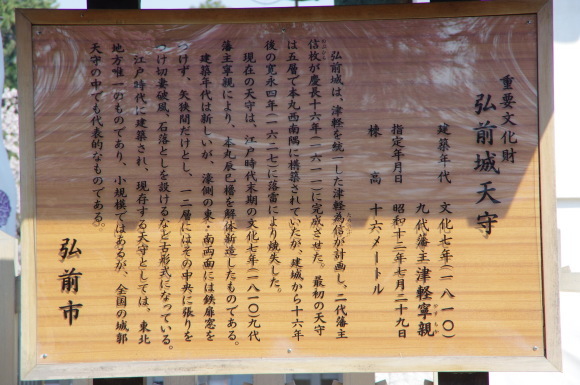 重要文化財
弘前城天守
建築年代　文化七年(一八一〇)
九代藩主津軽寧親
やすちか
指定年月日　昭和十二年七月二十九日
棟高　十六メートル
弘前城は、津軽を統一した津軽為信が計画し、二代藩主
信枚が慶長十六年(一六一一)に完成させた。最初の天守
は五層で本丸西南隅に構築されていたが、建城から十六年
後の寛永四年(一六二七)に落雷により焼失した。
現在の天守は、江戸時代末期の文化七年(一八一〇)九代
藩主寧親により、本丸辰巳櫓を解体新造したものである。
建築年代は新しいが、濠側の東・南西面には鉄扉窓を
つけず、矢狭間だけとし、一二層にはその中央に張りを
つけ切妻破風、石落としを設けるなど古形式になっている。
江戸時代に建築され、現存する天守としては、東北
地方唯一のものであり、小規模ではあるが、全国の城郭
天守の中でも代表的なものである。
弘前市